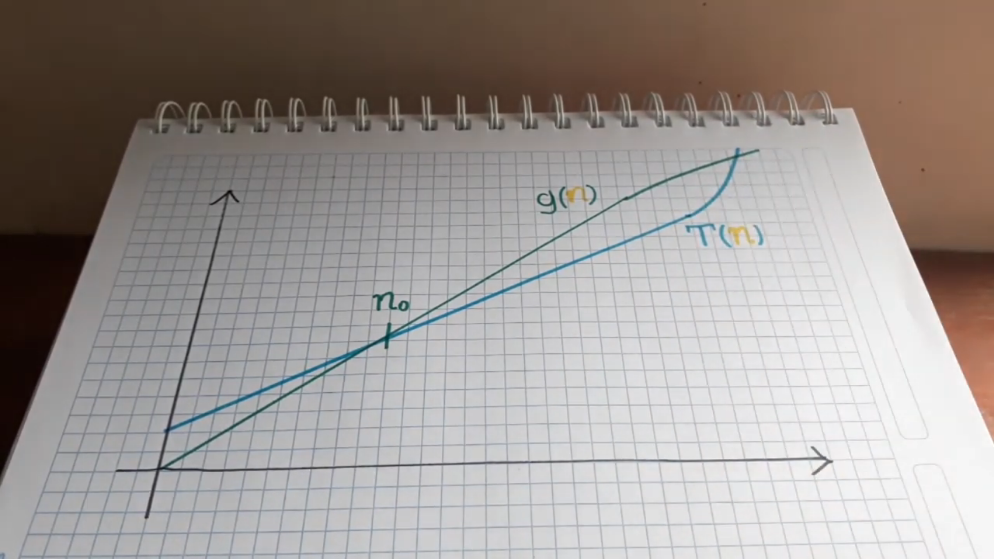 g(n)
T(n)
n₀